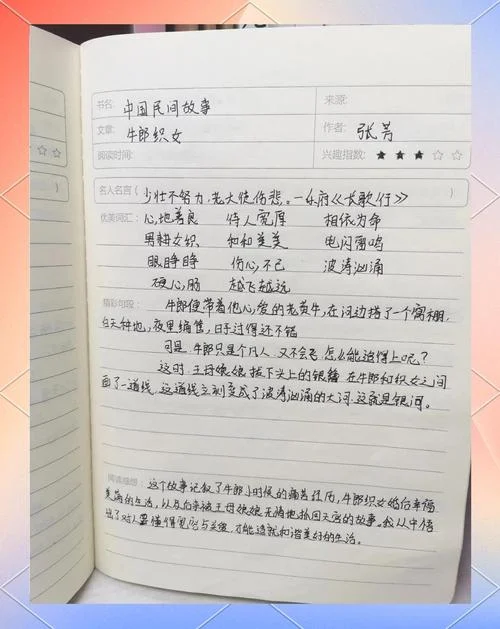 书名: 中国民间故事 来源:
文章: 牛郎织女 作者: 张芳
阅读时间: 兴趣指数: ★★★☆☆
名人名言( 少壮不努力,老大徒伤悲。—乐府《长歌行》 )
优美词汇: 心地善良 待人宽厚 相依为命
男耕女织 和和美美 电闪雷鸣
眼睁睁 伤心不已 波涛汹涌
硬心肠 越飞越远
精彩句段: 牛郎便带着他心爱的老黄牛,在河边搭了一个窝棚,
白天种地,夜里编筐,日子过得还不错
可是,牛郎只是个凡人,又不会飞,怎么能追得上呢?
这时,王母娘娘拔下头上的银簪,在牛郎和织女之间
画了一道线,这道线立刻变成了波涛汹涌的大河,这就是银河。
阅读感想: 这个故事记叙了牛郎小时候的痛苦经历,牛郎织女婚后幸福
美满的生活,以及后来被王母娘娘无情地抓回天宫的故事。我从中悟
出了对人要懂得宽容与关爱,才能造就和谐美好的生活。